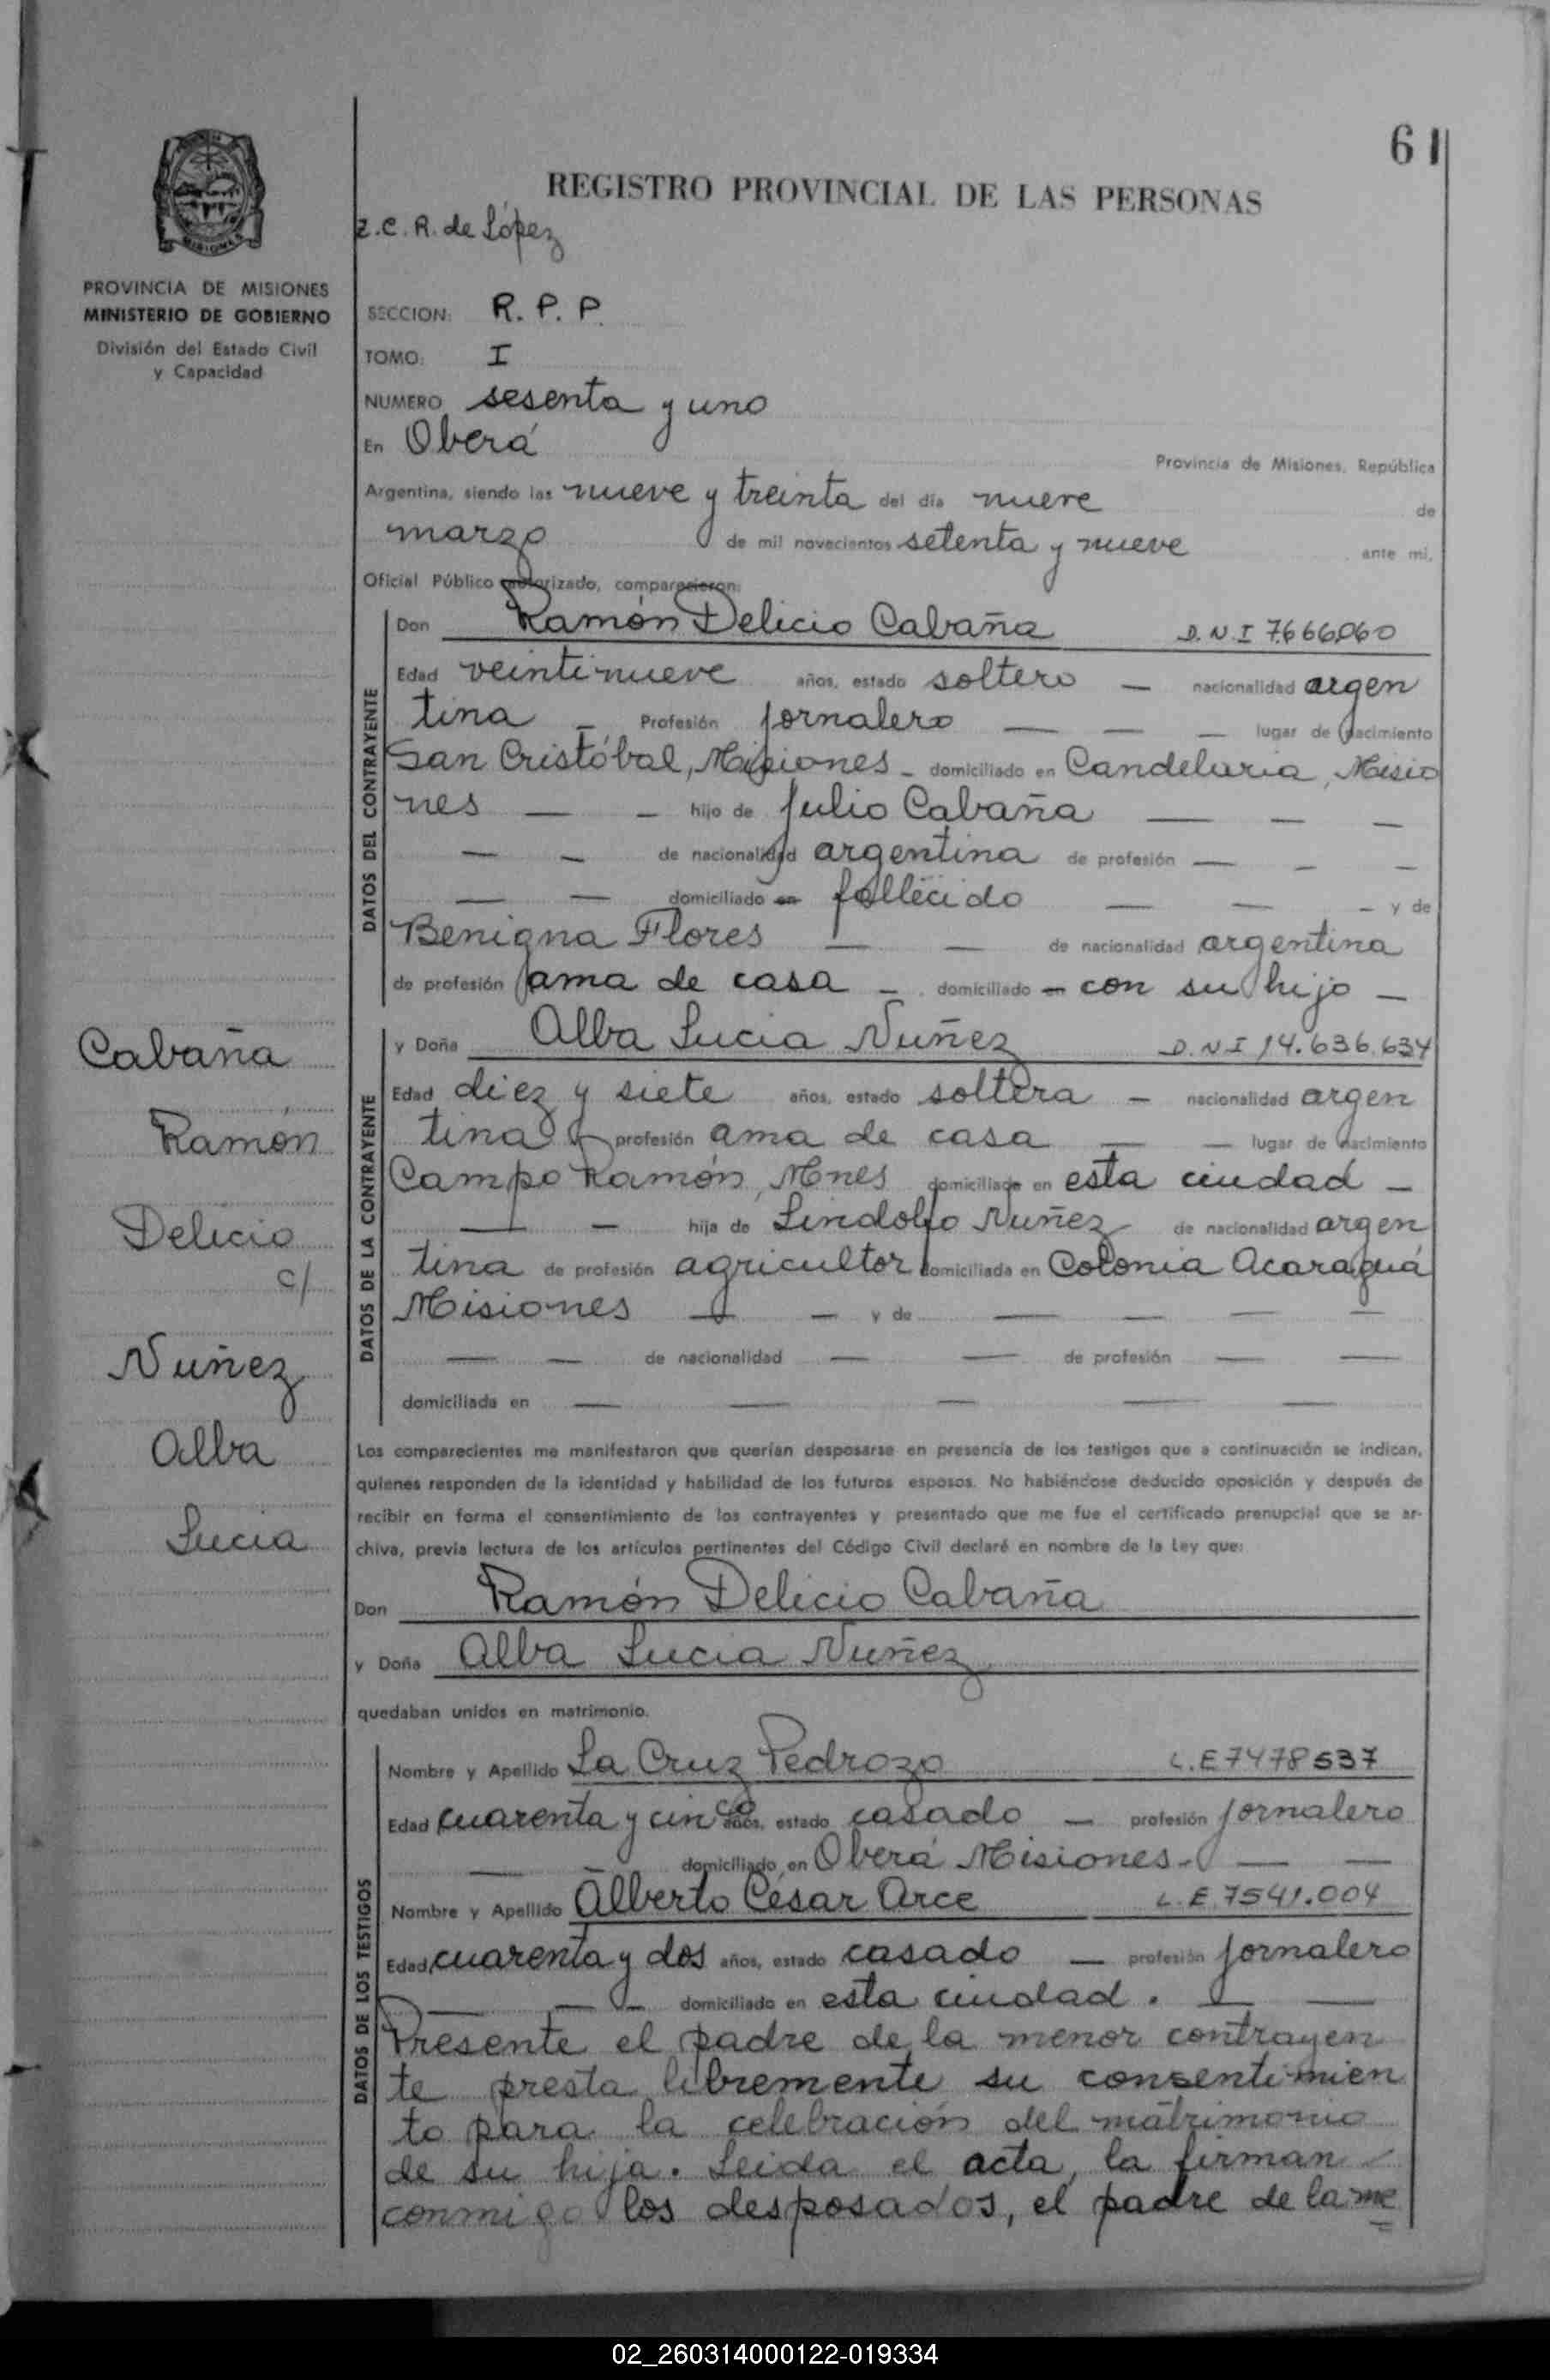 61
REGISTRO PROVINCIAL DE LAS PERSONAS
Z.C.R. de López
MISIONES
PROVINCIA DE MISIONES
MINISTERIO DE GOBIERNO
División del Estado Civil
y Capacidad
SECCION: R. P. P.
TOMO: I
NUMERO sesenta y uno
En Oberá
Provincia de Misiones, República
Argentina, siendo las nueve y treinta del día nueve de
marzo de mil novecientos setenta y nueve ante mi,
Oficial Público autorizado, comparecieron:
DATOS DEL CONTRAYENTE
Don Ramón Delicio Cabaña D.N.I 7.666.060
Edad veintinueve años, estado soltero — nacionalidad argen
tina — Profesión jornalero — — — lugar de nacimiento
San Cristóbal, Misiones - domiciliado en Candelaria, Misio
nes — — hijo de Julio Cabaña — — —
— — de nacionalidad argentina de profesión — — —
— — domiciliado en fallecido — — — y de
Benigna Flores — — de nacionalidad argentina
de profesión ama de casa — domiciliado en con su hijo —
DATOS DE LA CONTRAYENTE
y Doña Alba Lucia Nuñez D.N.I 14.636.634
Edad diez y siete años, estado soltera — nacionalidad argen
tina profesión ama de casa — — lugar de nacimiento
Campo Ramón, Mnes domiciliada en esta ciudad —
— — hija de Lindolfo Nuñez de nacionalidad argen
tina de profesión agricultor domiciliada en Colonia Acaraguá
Misiones — — y de — — — —
— — de nacionalidad — — de profesión — —
domiciliada en — — — — —
Cabaña
Ramón
Delicio
c/
Nuñez
Alba
Lucia
Los comparecientes me manifestaron que querían desposarse en presencia de los testigos que a continuación se indican,
quienes responden de la identidad y habilidad de los futuros esposos. No habiéndose deducido oposición y después de
recibir en forma el consentimiento de los contrayentes y presentado que me fue el certificado prenupcial que se ar-
chiva, previa lectura de los artículos pertinentes del Código Civil declaré en nombre de la Ley que:
Don Ramón Delicio Cabaña
y Doña Alba Lucia Nuñez
quedaban unidos en matrimonio.
DATOS DE LOS TESTIGOS
Nombre y Apellido La Cruz Pedrozo L.E 7478537
Edad cuarenta y cinco años, estado casado — profesión jornalero
— — domiciliado en Oberá Misiones - — —
Nombre y Apellido Alberto César Arce L.E. 7541.004
Edad cuarenta y dos años, estado casado — profesión jornalero
— — — domiciliado en esta ciudad. — —
Presente el padre de la menor contrayen
te presta libremente su consentimien
to para la celebración del matrimonio
de su hija. Leida el acta, la firman
conmigo los desposados, el padre de la me
02_260314000122-019334